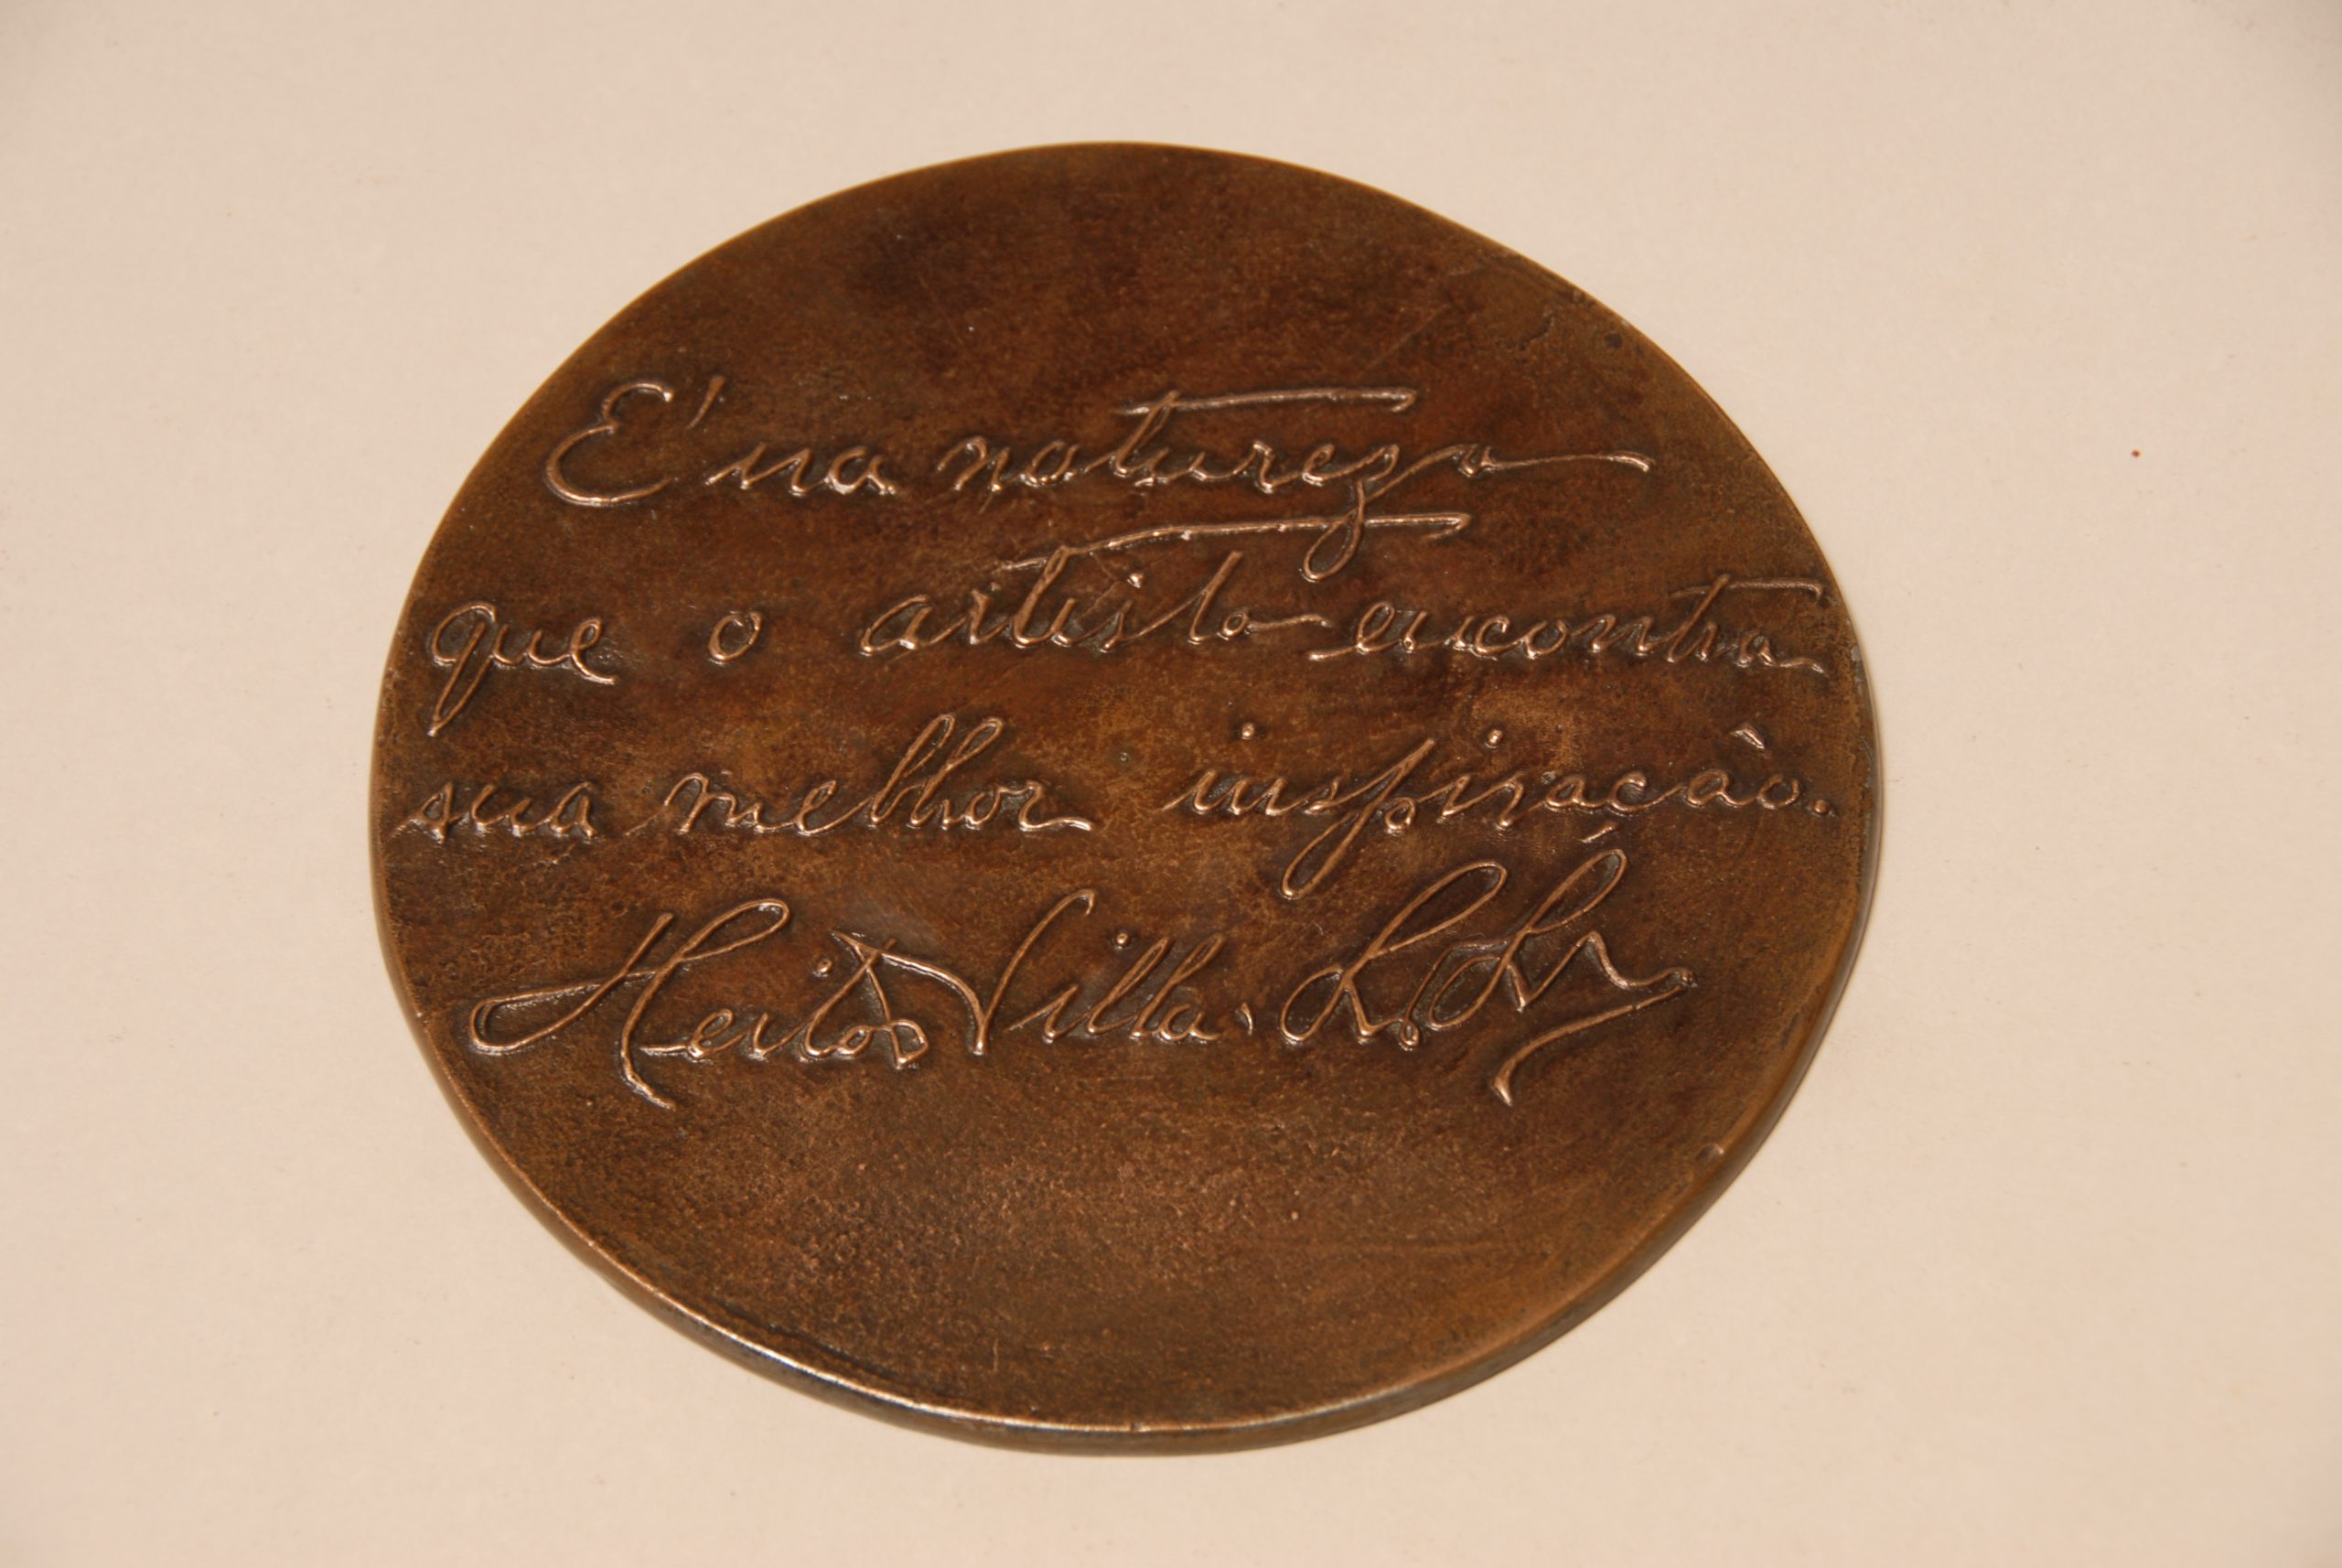 E' na natureza
que o artista encontra
sua melhor inspiração.
Heitor Villa-Lobos